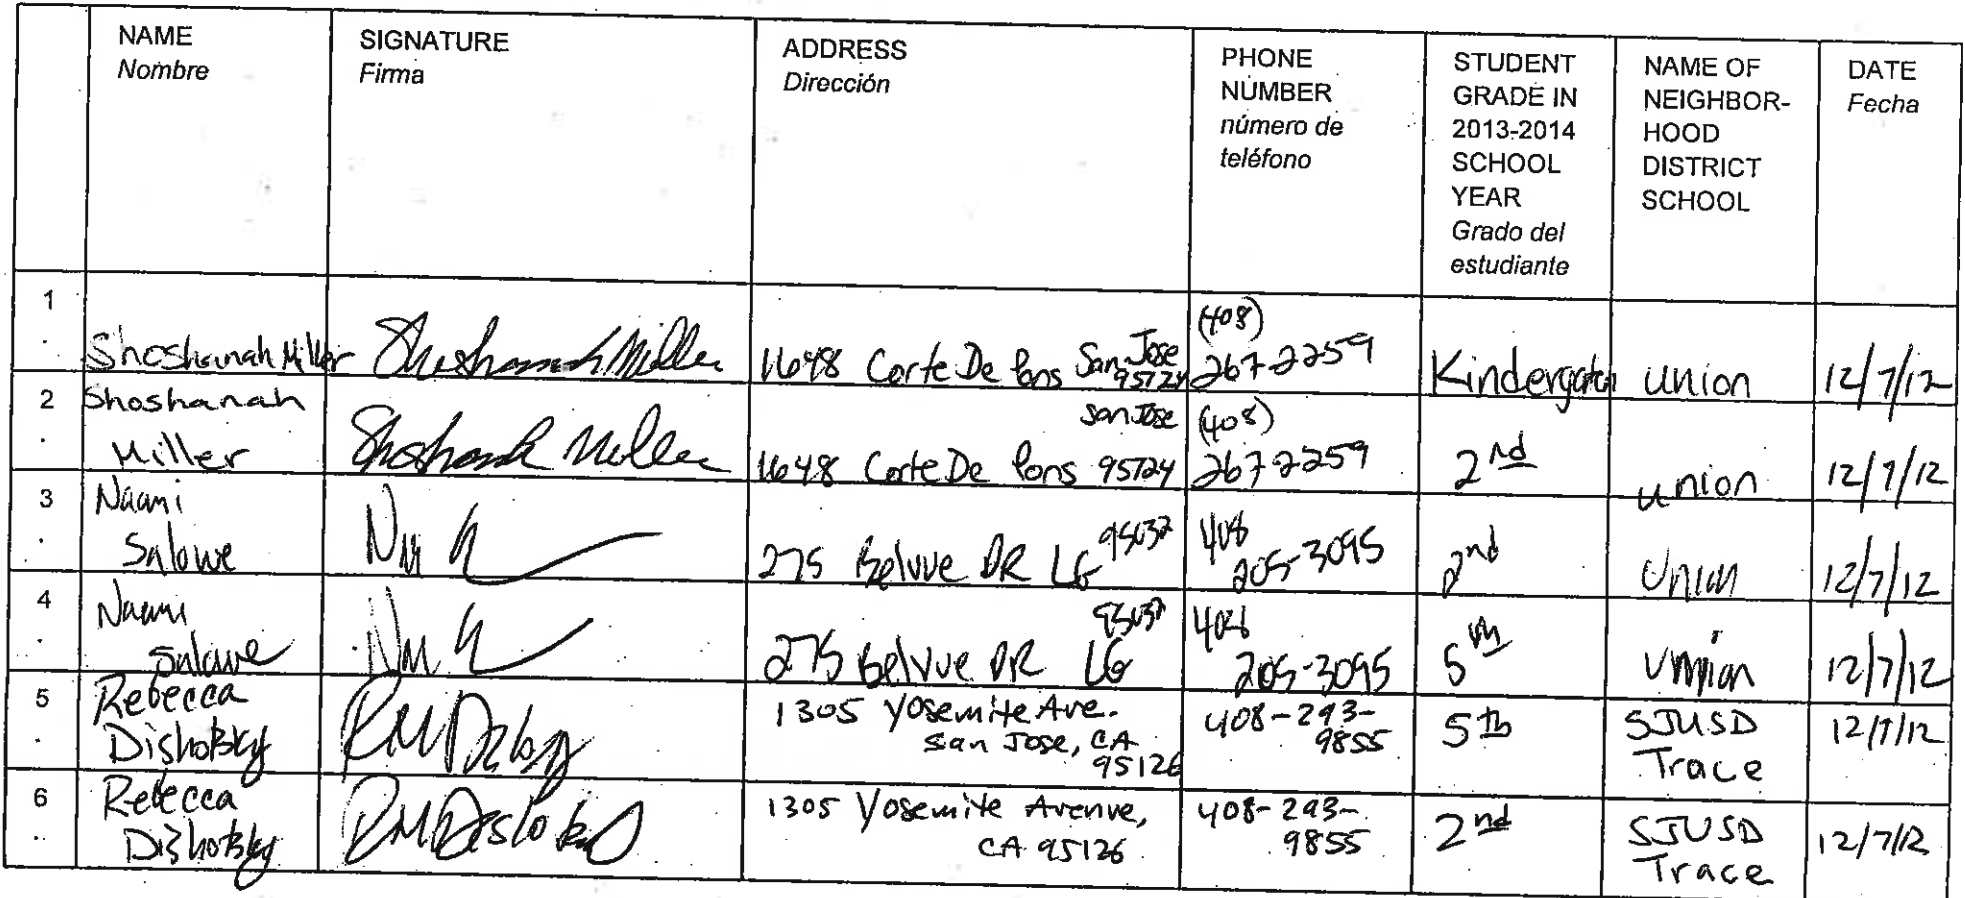 NAME
Nombre
SIGNATURE
Firma
ADDRESS
Dirección
PHONE
NUMBER
número de
teléfono
STUDENT
GRADE IN
2013-2014
SCHOOL
YEAR
Grado del
estudiante
NAME OF
NEIGHBOR-
HOOD
DISTRICT
SCHOOL
DATE
Fecha
1
.
Shoshanah Miller
Shoshanah Miller
1648 Corte De Pons San Jose
95124
(408)
267-2259
Kindergarten
Union
12/7/12
2
.
Shoshanah
Miller
Shoshanah Miller
San Jose
1648 Corte De Pons 95124
(408)
267-2259
2nd
union
12/7/12
3
.
Naomi
Salowe
275 Belvue DR LG 95032
408
205-3095
2nd
Union
12/7/12
4
.
Naomi
Salowe
95032
275 Belvue DR LG
408
205-3095
5th
Union
12/7/12
5
.
Rebecca
Dishotsky
1305 Yosemite Ave.
San Jose, CA
95126
408-293-
9855
5th
SJUSD
Trace
12/7/12
6
.
Rebecca
Dishotsky
1305 Yosemite Avenue,
CA 95126
408-293-
9855
2nd
SJUSD
Trace
12/7/12